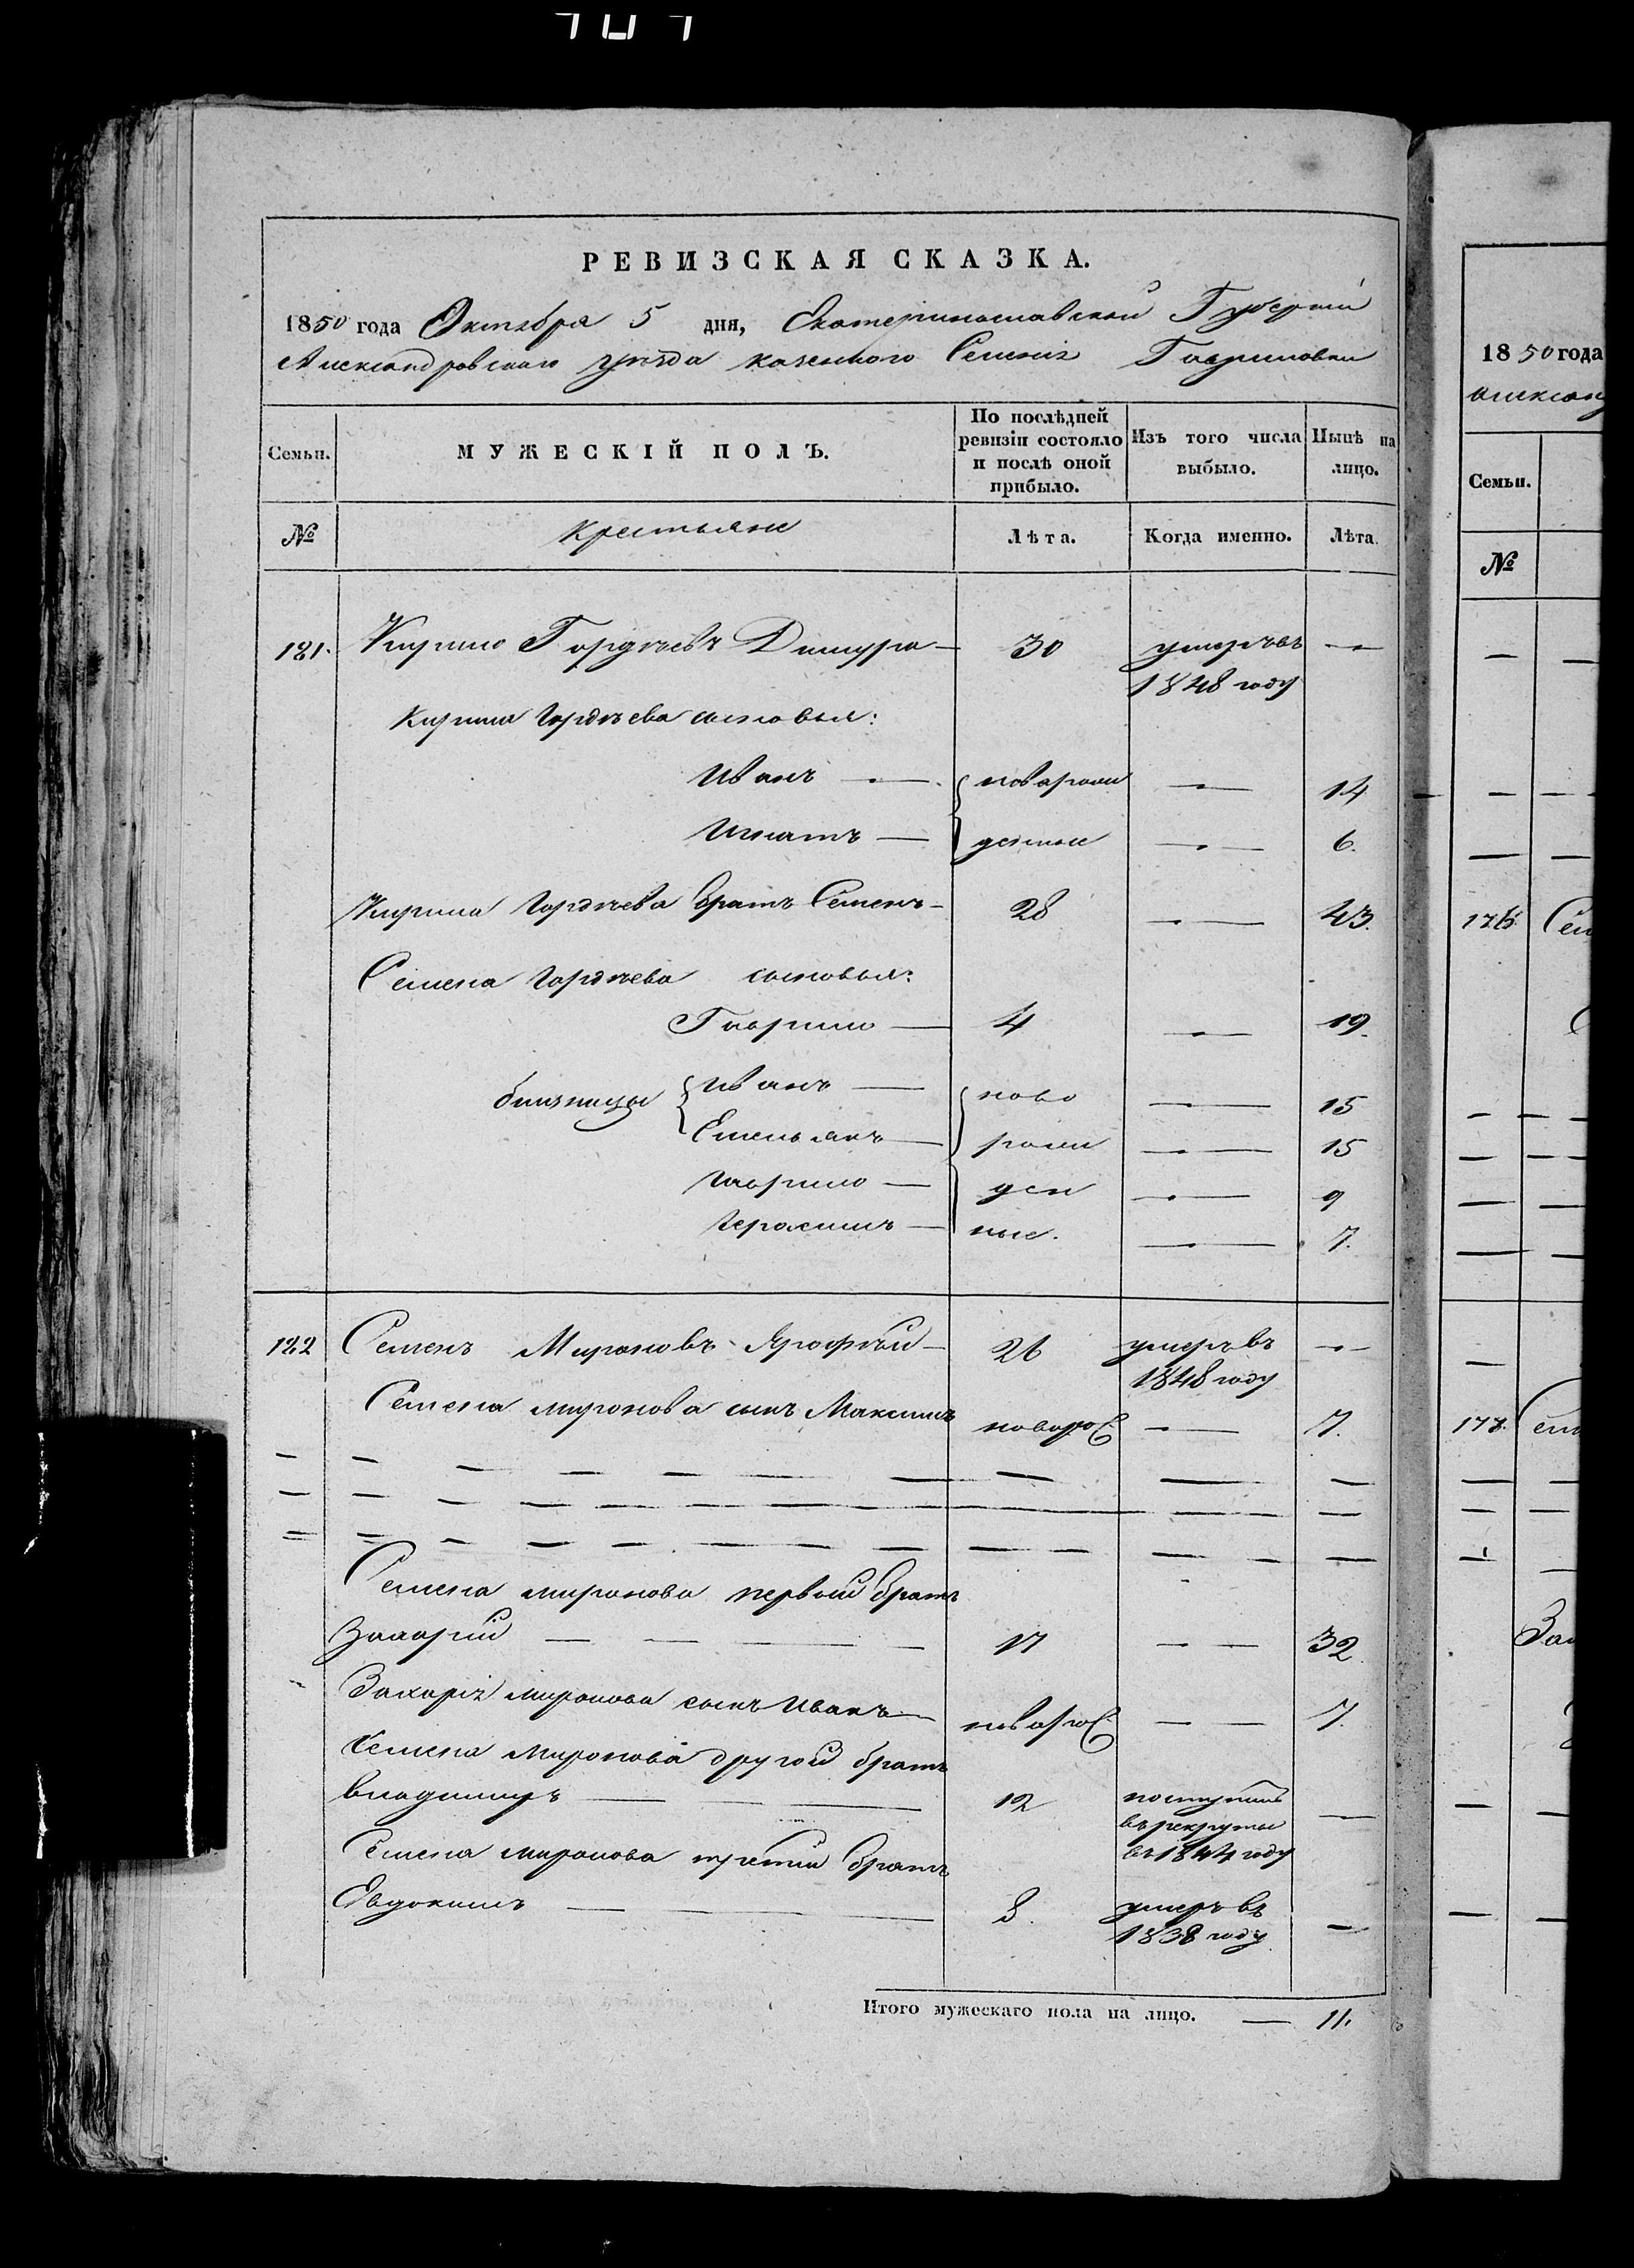 РЕВИЗСКАЯ СКАЗКА.
1850 года Октября 5 дня, Екатеринославской Губерній
Александровскаго уѣзда казенного Селенія Гавриловки
Семьи. МУЖЕСКІЙ ПОЛЪ. По послѣдней ревизіи состояло и послѣ оной прибыло. Изъ того числа выбыло. Нынѣ на лицо.
№ Крестьяне Лѣта. Когда именно. Лѣта.
181. Кирило Гордѣевъ 30 умеръ въ —
1848 году
Кирила Гордѣева сыновья:
Иванъ — новорож — 14
Игнатъ — денные — 6.
Кирила Гордѣева братъ Семенъ — 28 — 43.
Семена Гордѣева сыновья:
Гаврило — 4 — 19.
близнецы Иванъ — ново — 15
Емельянъ — рож — 15
Гаврило — ден — 9
Герасимъ — ные. — 7.
182 Семенъ Мироновъ Ярофѣй — 26 умеръ въ —
1848 году
Семена миронова сынъ Максимъ новорож — 7.
Семена миронова первый братъ
Захарій — 17 — 32.
Захарія миронова сынъ Иванъ — новорож — 7.
Семена Миронова другой братъ
Владимиръ — 12 поступилъ —
въ рекруты
въ 1844 году
Семена миронова третій братъ
Евдокимъ — 8. умеръ въ —
1838 году
Итого мужескаго пола на лицо. — 11.
1850 года
Семьи.
№